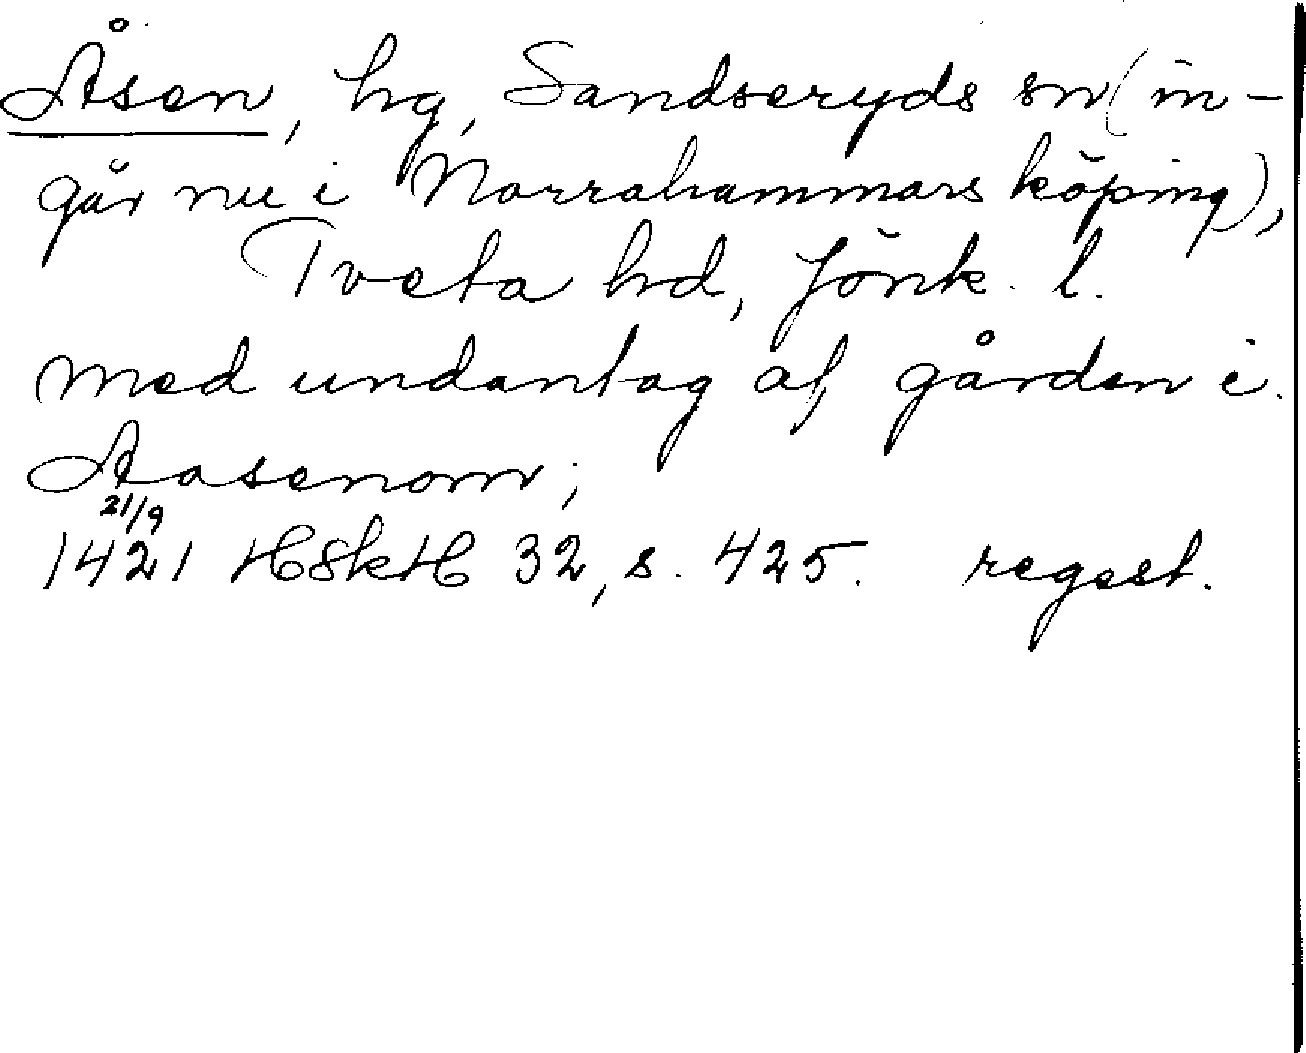 Åsen, hg, Sandseryds sn (in-
går nu i Norrahammars köping),
Tveta hd, Jönk. l.
med undantag af gården i
Aasenom;
21/9
1421 HSkH 32, s. 425. regest.